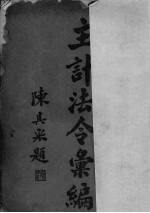 主計法令彙編
陳其采題